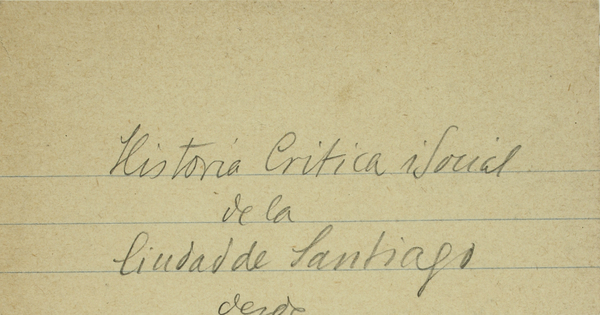 Historia Critica i Social
de la
Ciudad de Santiago
desde